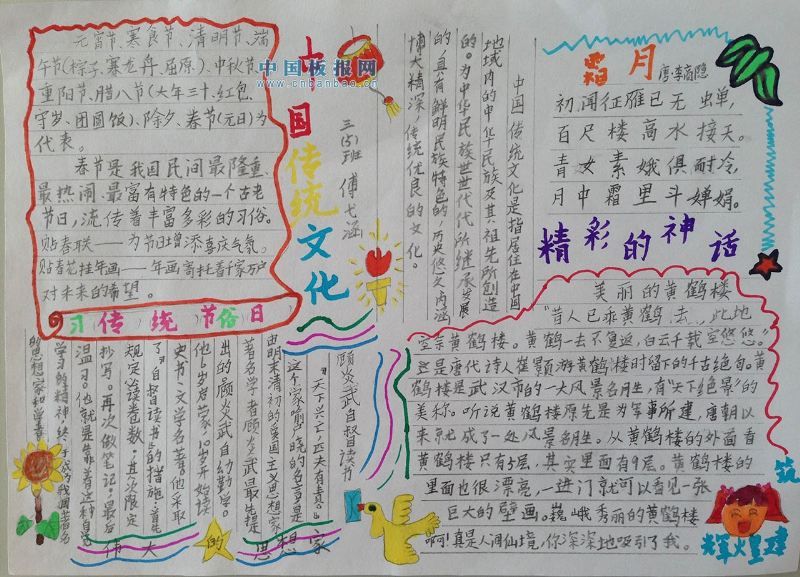 元宵节、寒食节、清明节、端
午节(粽子、赛龙舟、屈原)、中秋节、
重阳节、腊八节(大年三十、红包、
守岁、团圆饭)、除夕、春节(元日)为
代表。
春节是我国民间最隆重、
最热闹、最富有特色的一个古老
节日,流传着丰富多彩的习俗。
贴春联——为节日增添喜庆气氛。
贴春花挂年画——年画寄托着千家万户
对未来的希望。
习传统节俗日
中国板报网
www.cnbanbao.cn
国传统文化
三(5)班 傅弋涵
中国传统文化是指居住在中国
地域内的中华民族及其祖先所创造
的。为中华民族世世代代所继承发展
的,具有鲜明民族特色的,历史悠久,内涵
博大精深,传统优良的文化。
霜月
唐·李商隐
初闻征雁已无蝉,
百尺楼高水接天。
青女素娥俱耐冷,
月中霜里斗婵娟。
精彩的神话
美丽的黄鹤楼
“昔人已乘黄鹤去,此地
空余黄鹤楼。黄鹤一去不复返,白云千载空悠悠。”
这是唐代诗人崔颢游黄鹤楼时留下的千古绝句。黄
鹤楼是武汉市的一大风景名胜,有“天下绝景”的
美称。听说黄鹤楼原先是为军事所建,唐朝以
来就成了一处风景名胜。从黄鹤楼的外面看
黄鹤楼只有5层,其实里面有9层。黄鹤楼的
里面也很漂亮,一进门就可以看见一张
巨大的壁画。巍峨秀丽的黄鹤楼
啊!真是人间仙境,你深深地吸引了我。
筑
辉煌建
顾炎武自督读书
“天下兴亡,匹夫有责。”
这个家喻户晓的名言是
由明末清初的爱国主义思想家、
著名学者顾炎武最先提
出的。顾炎武自幼勤学。
他6岁启蒙,10岁开始读
史书、文学名著。他采取
了“自督读书”的措施:首先
规定
读卷数;其次限定
抄写。再次做笔记。最后
温习。他就是靠着这种自觉
学习的精神,终于成为我国著名
的思想家和学者。
伟大的思想家